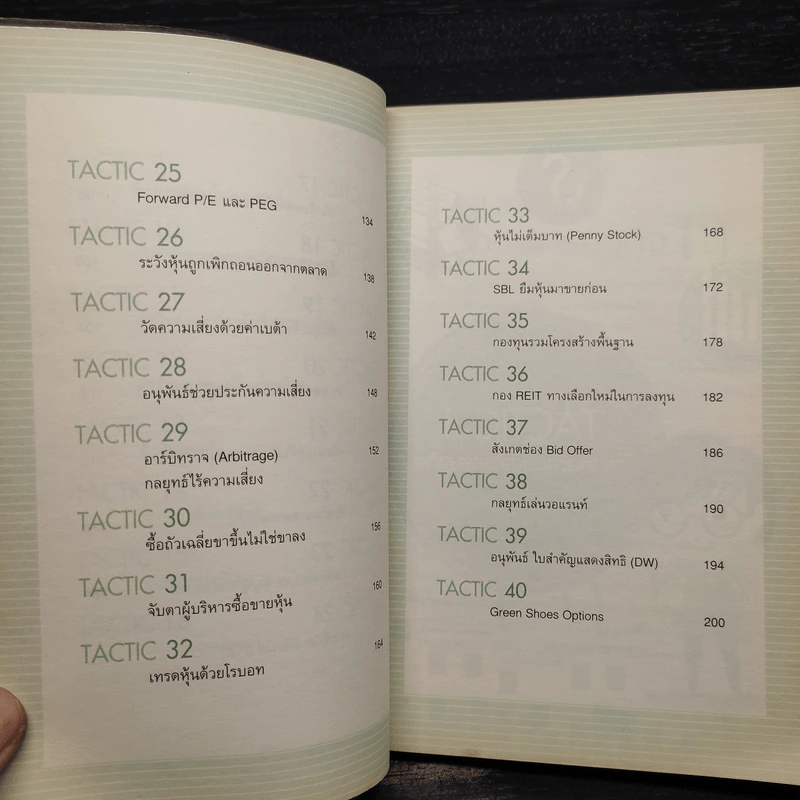 TACTIC 25
Forward P/E และ PEG 134
TACTIC 26
ระวังหุ้นถูกเพิกถอนออกจากตลาด 138
TACTIC 27
วัดความเสี่ยงด้วยค่าเบต้า 142
TACTIC 28
อนุพันธ์ช่วยประกันความเสี่ยง 148
TACTIC 29
อาร์บิทราจ (Arbitrage) 152
กลยุทธ์ไร้ความเสี่ยง
TACTIC 30
ซื้อถัวเฉลี่ยขาขึ้นไม่ใช่ขาลง 156
TACTIC 31
จับตาผู้บริหารซื้อขายหุ้น 160
TACTIC 32
เทรดหุ้นด้วยโรบอท 164
TACTIC 33
หุ้นไม่เต็มบาท (Penny Stock) 168
TACTIC 34
SBL ยืมหุ้นมาขายก่อน 172
TACTIC 35
กองทุนรวมโครงสร้างพื้นฐาน 178
TACTIC 36
กอง REIT ทางเลือกใหม่ในการลงทุน 182
TACTIC 37
สังเกตช่อง Bid Offer 186
TACTIC 38
กลยุทธ์เล่นวอแรนท์ 190
TACTIC 39
อนุพันธ์ ใบสำคัญแสดงสิทธิ (DW) 194
TACTIC 40
Green Shoes Options 200